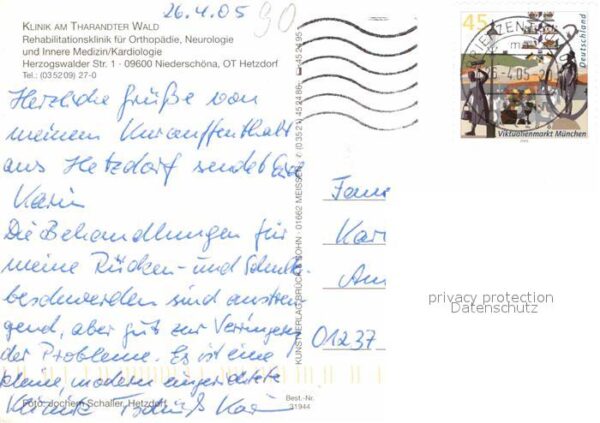 26.4.05
90
KLINIK AM THARANDTER WALD
Rehabilitationsklinik für Orthopädie, Neurologie
und Innere Medizin/Kardiologie
Herzogswalder Str. 1 · 09600 Niederschöna, OT Hetzdorf
Tel.: (03 52 09) 27-0
Herzliche Grüße von
meinem Kuraufenthalt
aus Hetzdorf sendet Eure
Karin
Die Behandlungen für
meine Rücken- und
beschwerden sind anstren-
gend, aber gut zur Verringerung
der Probleme. Es ist eine
kleine, modern eingerichtete
Klinik Tschüß Karin
Foto: Jochem Schaller, Hetzdorf
Best.-Nr.
31944
KUNSTVERLAG BRÜCK & SOHN · 01662 MEISSEN
45
Deutschland
Viktualienmarkt München
BRIEFZENTRUM
Fam
Kar
Am
01237
privacy protection
Datenschutz